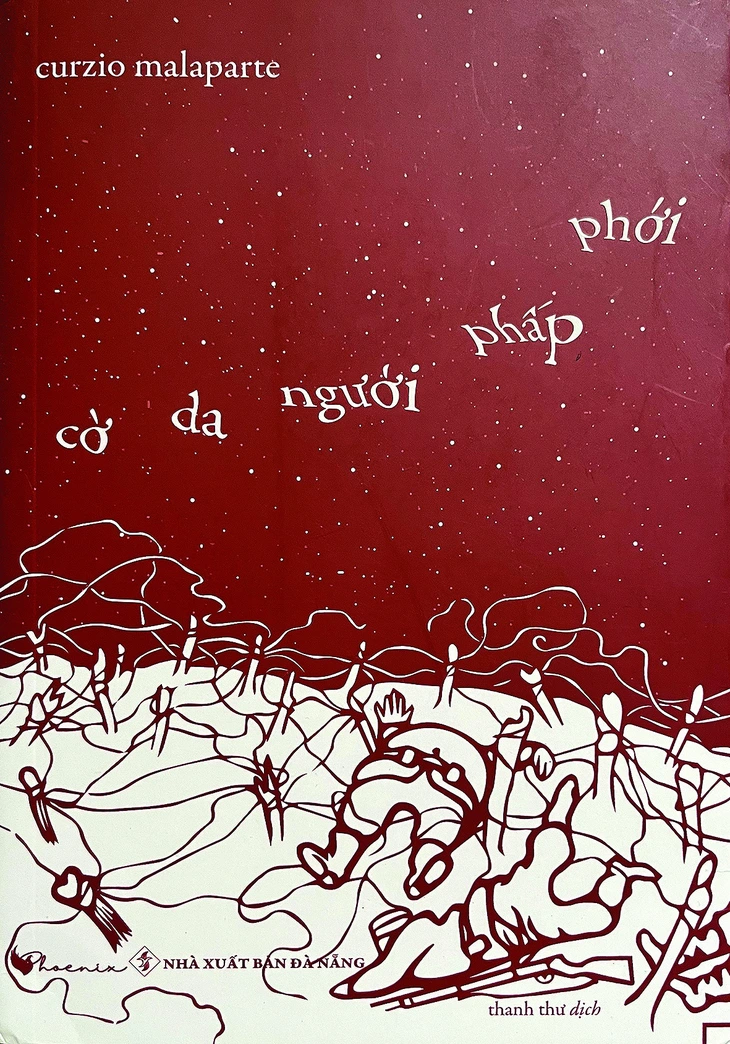 curzio malaparte
cờ da người phấp phới
Phoenix NHÀ XUẤT BẢN ĐÀ NẴNG
thanh thư dịch